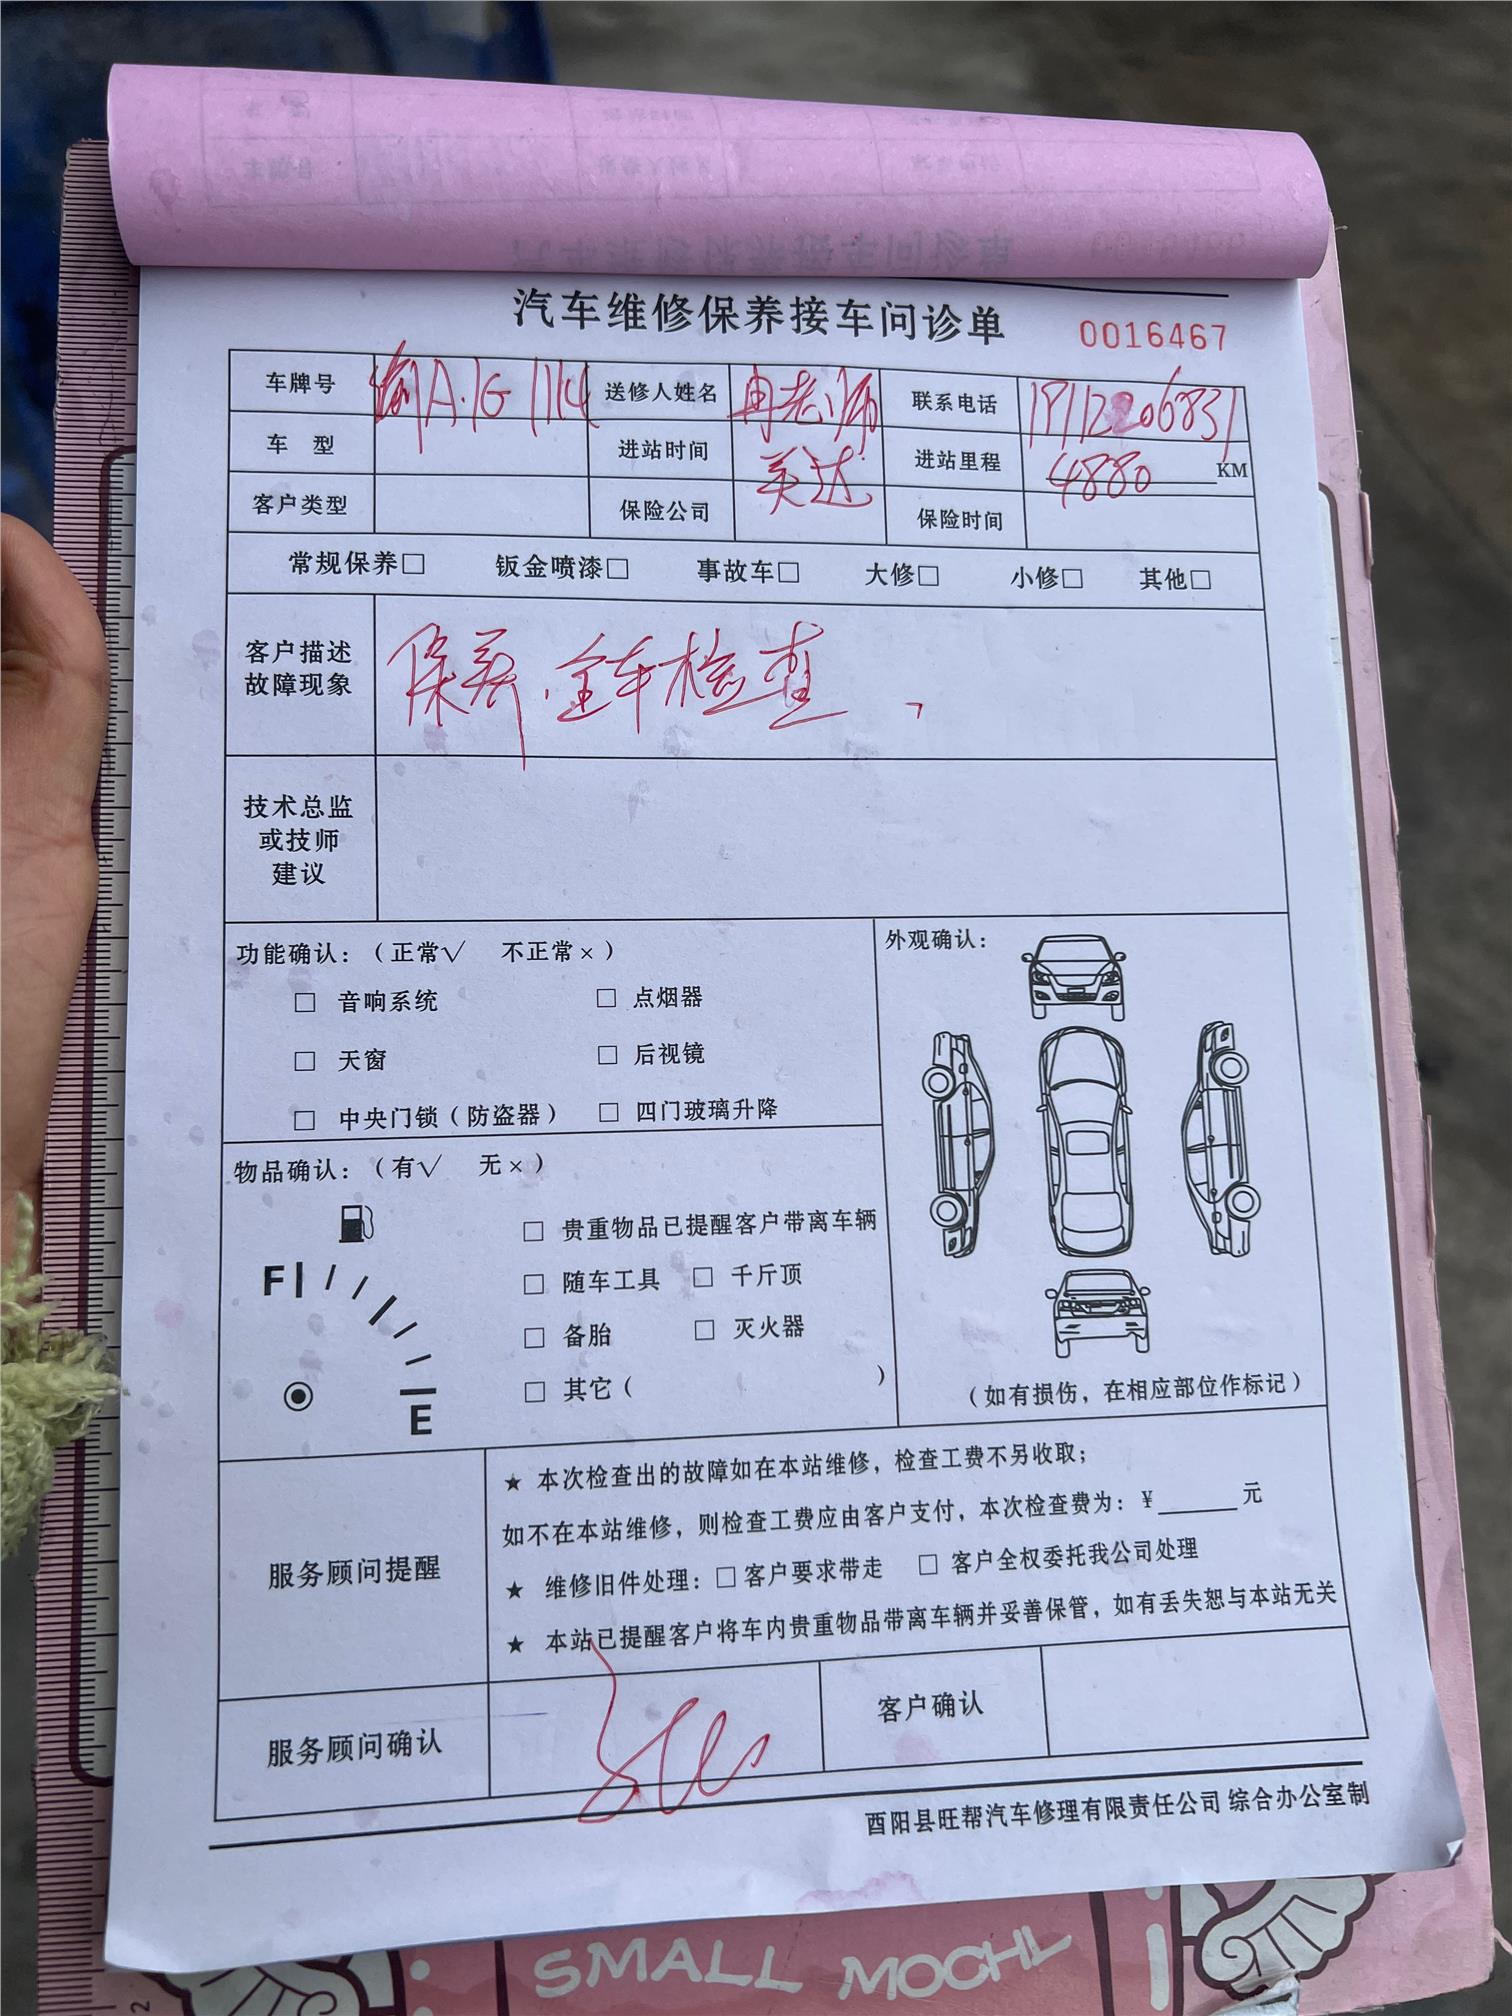 汽车维修保养接车问诊单 0016467
车牌号 渝A·1G114 送修人姓名 冉老师 联系电话 19112206831
车 型 进站时间 进站里程 4880 KM
客户类型 保险公司 关达 保险时间
常规保养□ 钣金喷漆□ 事故车□ 大修□ 小修□ 其他□
客户描述
故障现象
保养.全车检查
技术总监
或技师
建议
功能确认:(正常√ 不正常×)
□ 音响系统 □ 点烟器
□ 天窗 □ 后视镜
□ 中央门锁(防盗器) □ 四门玻璃升降
外观确认:
(如有损伤,在相应部位作标记)
物品确认:(有√ 无×)
F
E
□ 贵重物品已提醒客户带离车辆
□ 随车工具 □ 千斤顶
□ 备胎 □ 灭火器
□ 其它( )
服务顾问提醒
★ 本次检查出的故障如在本站维修,检查工费不另收取;
如不在本站维修,则检查工费应由客户支付,本次检查费为:¥______元
★ 维修旧件处理:□客户要求带走 □ 客户全权委托我公司处理
★ 本站已提醒客户将车内贵重物品带离车辆并妥善保管,如有丢失恕与本站无关
服务顾问确认 客户确认
酉阳县旺帮汽车修理有限责任公司 综合办公室制
SMALL MOCHL
2